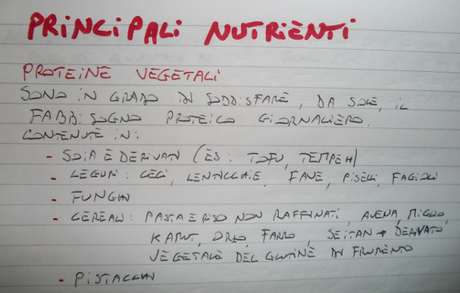 PRINCIPALI NUTRIENTI
PROTEINE VEGETALI
SONO IN GRADO DI SODDISFARE, DA SOLE, IL
FABBISOGNO PROTEICO GIORNALIERO.
CONTENUTE IN:
- SOIA E DERIVATI (ES: TOFU, TEMPEH)
- LEGUMI: CECI, LENTICCHIE, FAVE, PISELLI, FAGIOLI
- FUNGHI
- CEREALI: PASTA E RISO NON RAFFINATI, AVENA, MIGLIO,
KAMUT, ORZO, FARRO, SEITAN → DERIVATO
VEGETALE DEL GLUTINE DI FRUMENTO
- PISTACCHI